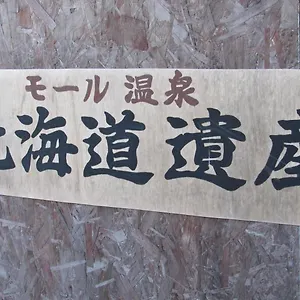 モール温泉
北海道遺産